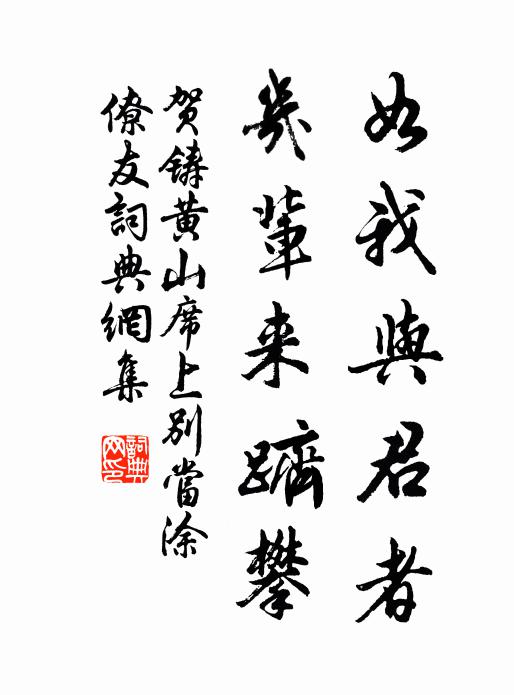 如我與君者
幾輩来躋攀
贺鑄黄山席上别當涂
僚友詞典網集
詞典网印